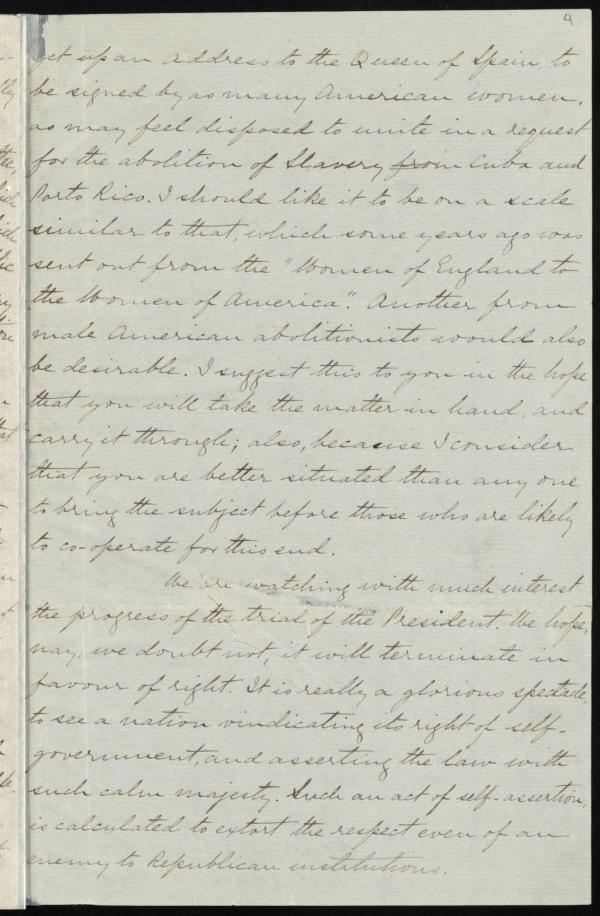 4
get up an address to the Queen of Spain, to
be signed by as many American women,
as may feel disposed to unite in a request
for the abolition of Slavery from Cuba and
Porto Rico. I should like it to be on a scale
similar to that, which some years ago was
sent out from the "Women of England to
the Women of America". Another from
male American abolitionists would also
be desirable. I suggest this to you in the hope
that you will take the matter in hand, and
carry it through; also, because I consider
that you are better situated than any one
to bring the subject before those who are likely
to co-operate for this end.
We are watching with much interest
the progress of the trial of the President. We hope,
nay, we doubt not, it will terminate in
favour of right. It is really a glorious spectacle,
to see a nation vindicating its right of self-
government, and asserting the law with
such calm majesty. Such an act of self-assertion,
is calculated to extort the respect even of an
enemy to Republican institutions.